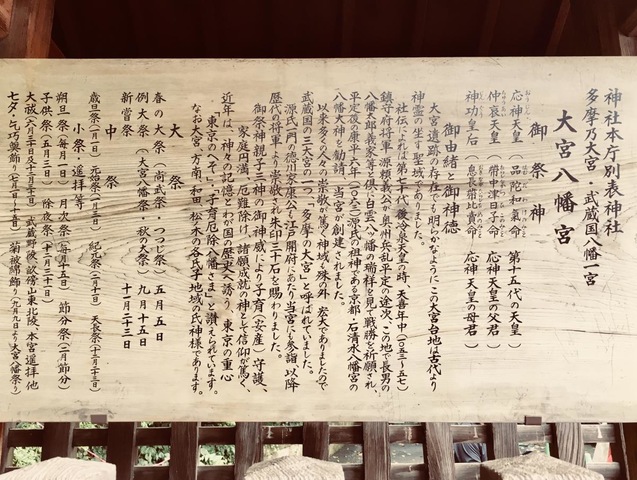 神社本庁別表神社
多摩乃大宮・武蔵国八幡一宮
大宮八幡宮
御祭神
応神天皇(品陀和氣命)第十五代の天皇
仲哀天皇(帶中津彦命)応神天皇の父君
神功皇后(息長帶比賣命)応神天皇の母君
御由緒と御神徳
大宮遺跡の存在でも明らかなようにこの大宮台地は古代より
神霊の坐す聖域でありました。
社伝によれば第七十代後冷泉天皇の時、天喜年中(一〇五三~五七)
鎮守府将軍源頼義公が奥州兵乱平定の途次、この地で長男の
八幡太郎義家等と倶に白雲八幡の瑞祥を見て戦勝を祈願され、
平定後の康平六年(一〇六三)源氏の祖神である京都・石清水八幡宮の
八幡大神を勧請、当宮が創建されました。
以来多くの人々の崇敬が篤く神域も殊の外宏大でありましたので
武蔵国の三大宮の一つ「多摩の大宮」と呼ばれていました。
源氏一門の徳川家康公も江戸開府にあたり当宮にも参詣、以降
歴代の将軍より崇敬され朱印三十石を賜わりました。
御祭神親子三神の御神威により子育(安産)守護、
家庭円満、厄難除け、諸願成就の神として信仰が篤く、
近年は、神々の記憶とわが国の歴史へ誘う、東京の重心
「東京のへそ」「子育厄除八幡さま」と讃えられています。
なお大宮、方南、和田、松木の各氏子地域の氏神様であります。
大祭
春の大祭(尚武祭・つつじ祭)五月五日
例大祭(大宮八幡祭・秋の大祭)九月十五日
新嘗祭 十一月二十三日
中祭
歳旦祭(一月一日) 元始祭(一月三日) 紀元祭(二月十一日) 天長祭(十二月二十三日)
小祭・遥拝等
朔旦祭(毎月一日) 月次祭(毎月十五日) 節分祭(二月節分)
子供祭(五月三日) 除夜祭(十二月三十一日)
大祓(六月三十日及十二月三十一日) 武蔵野後、畝傍山東北陵、本宮遥拝他
七夕乞巧奠飾り(七月一日~十五日) 菊被綿飾り(九月九日より大宮八幡祭り)